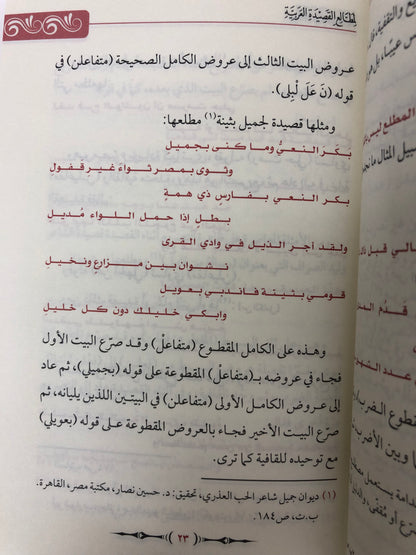 لمطالع القصيدة العربية
عروض البيت الثالث إلى عروض الكامل الصحيحة (متفاعلن) في
قوله (نَ عَلَ لْبِلى).
ومثلها قصيدة لجميل بثينة(١) مطلعها:
بَكَرَ النعيُّ وما كنى بجميل
وثوى بمصر ثواءَ غيرِ قَفولِ
بكر النعي بفارسٍ ذي همةٍ
بطلٍ إذا حمل اللواء مُديلِ
ولقد أجر الذيل في وادي القرى
نشوان بين مزارع ونخيلِ
قومي بثينة فاندبي بعويل
وابكي خليلك دون كل خليلِ
وهذه على الكامل المقطوع (متفاعلْ) وقد صرّع البيت الأول
فجاء في عروضه بـ(متفاعلْ) المقطوعة على قوله (بجميلي)، ثم عاد
إلى عروض الكامل الأولى (متفاعلن) في البيتين اللذين يليانه، ثم
صرّع البيت الأخير فجاء بالعروض المقطوعة على قوله (بعويلي)
مع توحيده للقافية كما ترى.
(١) ديوان جميل شاعر الحب العذري، تحقيق: د. حسين نصار، مكتبة مصر، القاهرة.
ب.ت، ص١٨٤.
٢٣